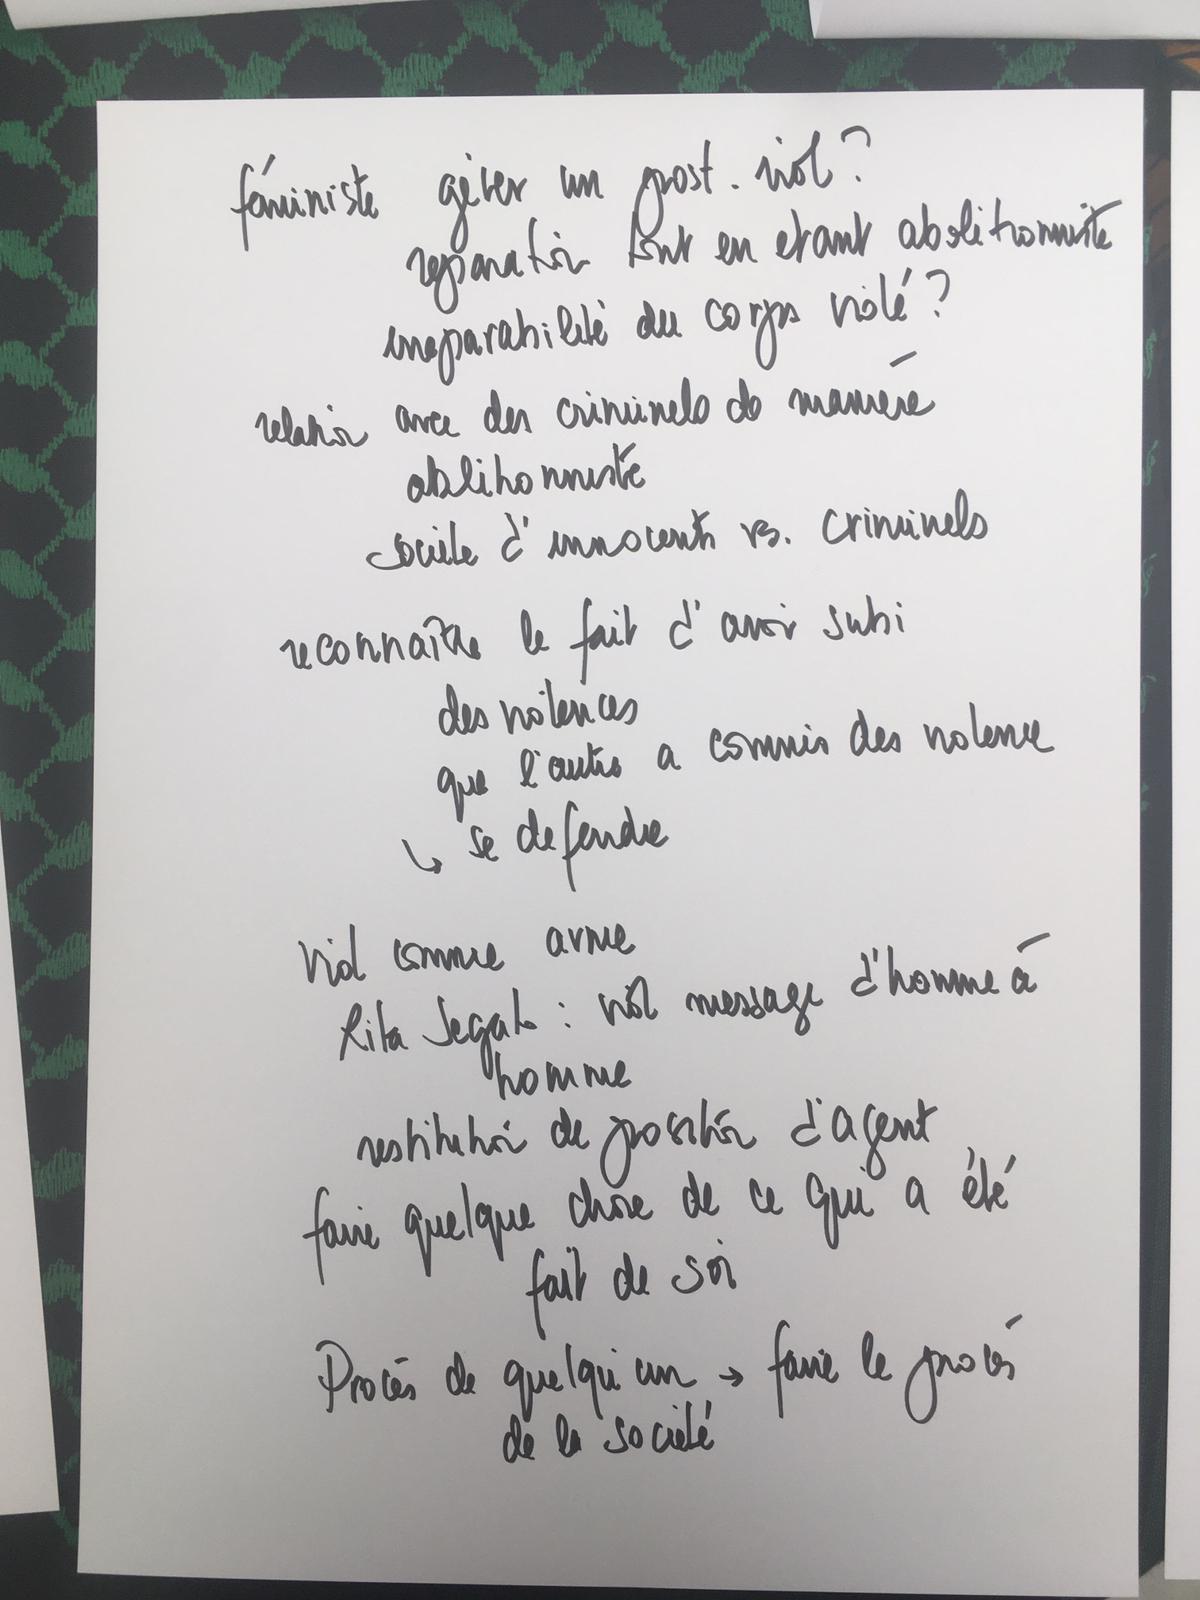 féministe gérer un post. viol?
reparation tout en etant abolitionniste
irreparabilité du corps violé?
relation avec des criminels de manière
abolitionniste
societe d'innocents vs. criminels
reconnaître le fait d'avoir subi
des violences
que l'autre a commis des violence
↳ se defendre
Viol comme arme
Rita Segato : viol message d'homme à
homme
restitution de position d'agent
faire quelque chose de ce qui a été
fait de soi
Procès de quelqu'un → faire le procès
de la société